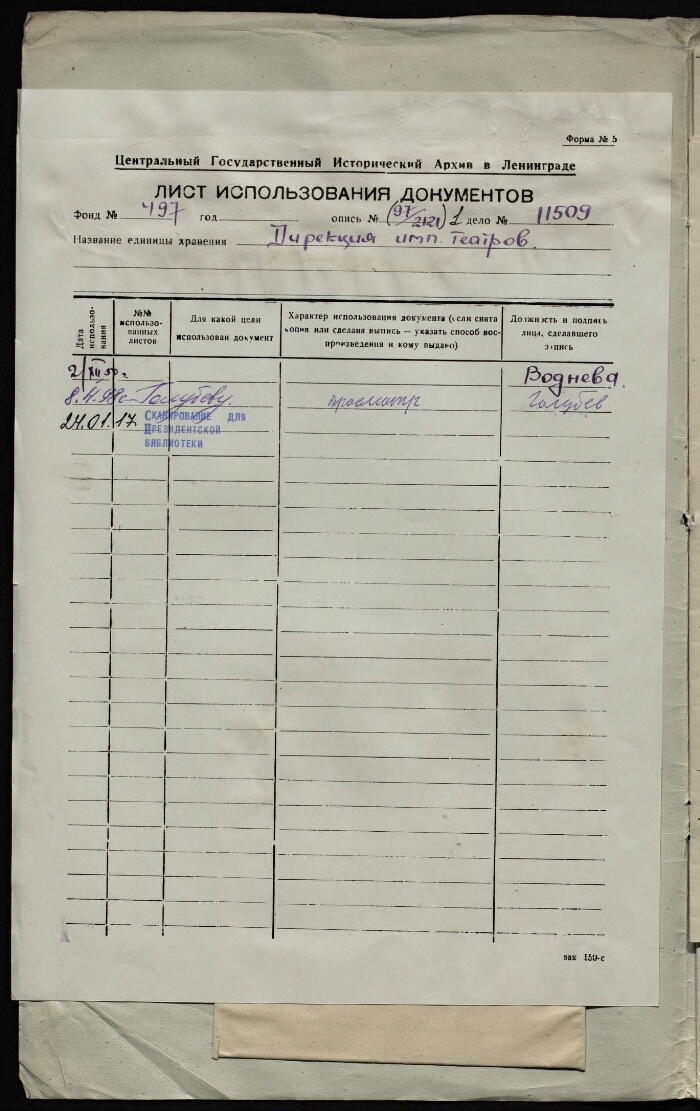 Форма № 5
Центральный Государственный Исторический Архив в Ленинграде
ЛИСТ ИСПОЛЬЗОВАНИЯ ДОКУМЕНТОВ
Фонд № 497 год опись № (97/2121) 1 дело № 11509
Название единицы хранения Дирекция имп. театров.
Дата использования
№№ использованных листов
Для какой цели использован документ
Характер использования документа (если снята копия или сделана выпись — указать способ воспроизведения и кому выдано)
Должность и подпись лица, сделавшего запись
2/XII 50 г. Воднева.
Голубеву. просмотр Голубев
24.01.17 Сканирование для
Президентской
библиотеки
зак 150-с